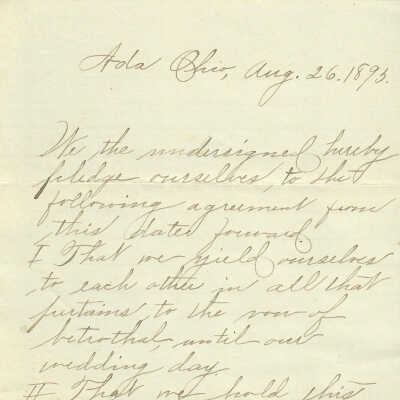 Ada Ohio, Aug. 26. 1895.
We the undersigned hereby
pledge ourselves, to the
following agreement from
this date forward.
I That we yield ourselves
to each other in all that
pertains, to the vow of
betrothal, until our
wedding day.
II That we hold this